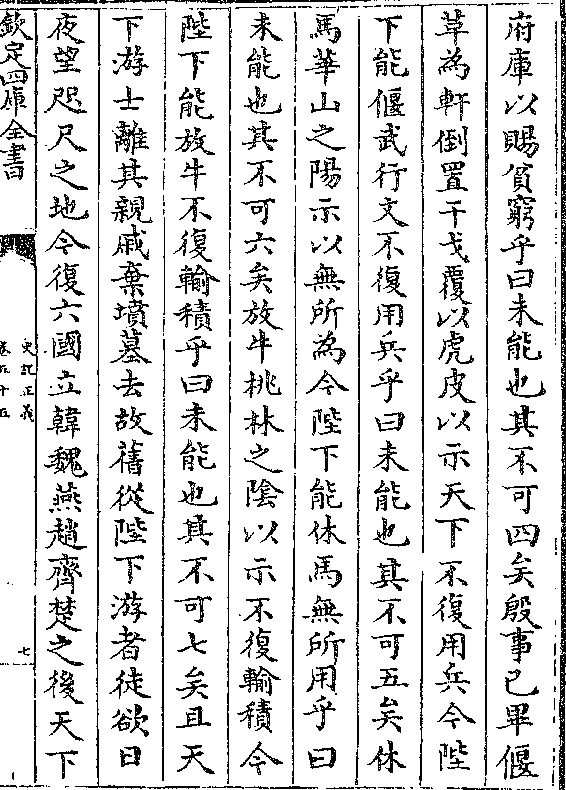 府庫以賜貧窮乎曰未能也其不可四矣殷事已畢偃
革為軒倒置干戈覆以虎皮以示天下不復用兵今陛
下能偃武行文不復用兵乎曰未能也其不可五矣休
馬華山之陽示以無所為今陛下能休馬無所用乎曰
未能也其不可六矣放牛桃林之陰以示不復輸積今
陛下能放牛不復輸積乎曰未能也其不可七矣且天
下游士離其親戚棄墳墓去故舊從陛下游者徒欲日
夜望咫尺之地今復六國立韓魏燕趙齊楚之後天下
欽定四庫全書
史記正義
卷五十五
七